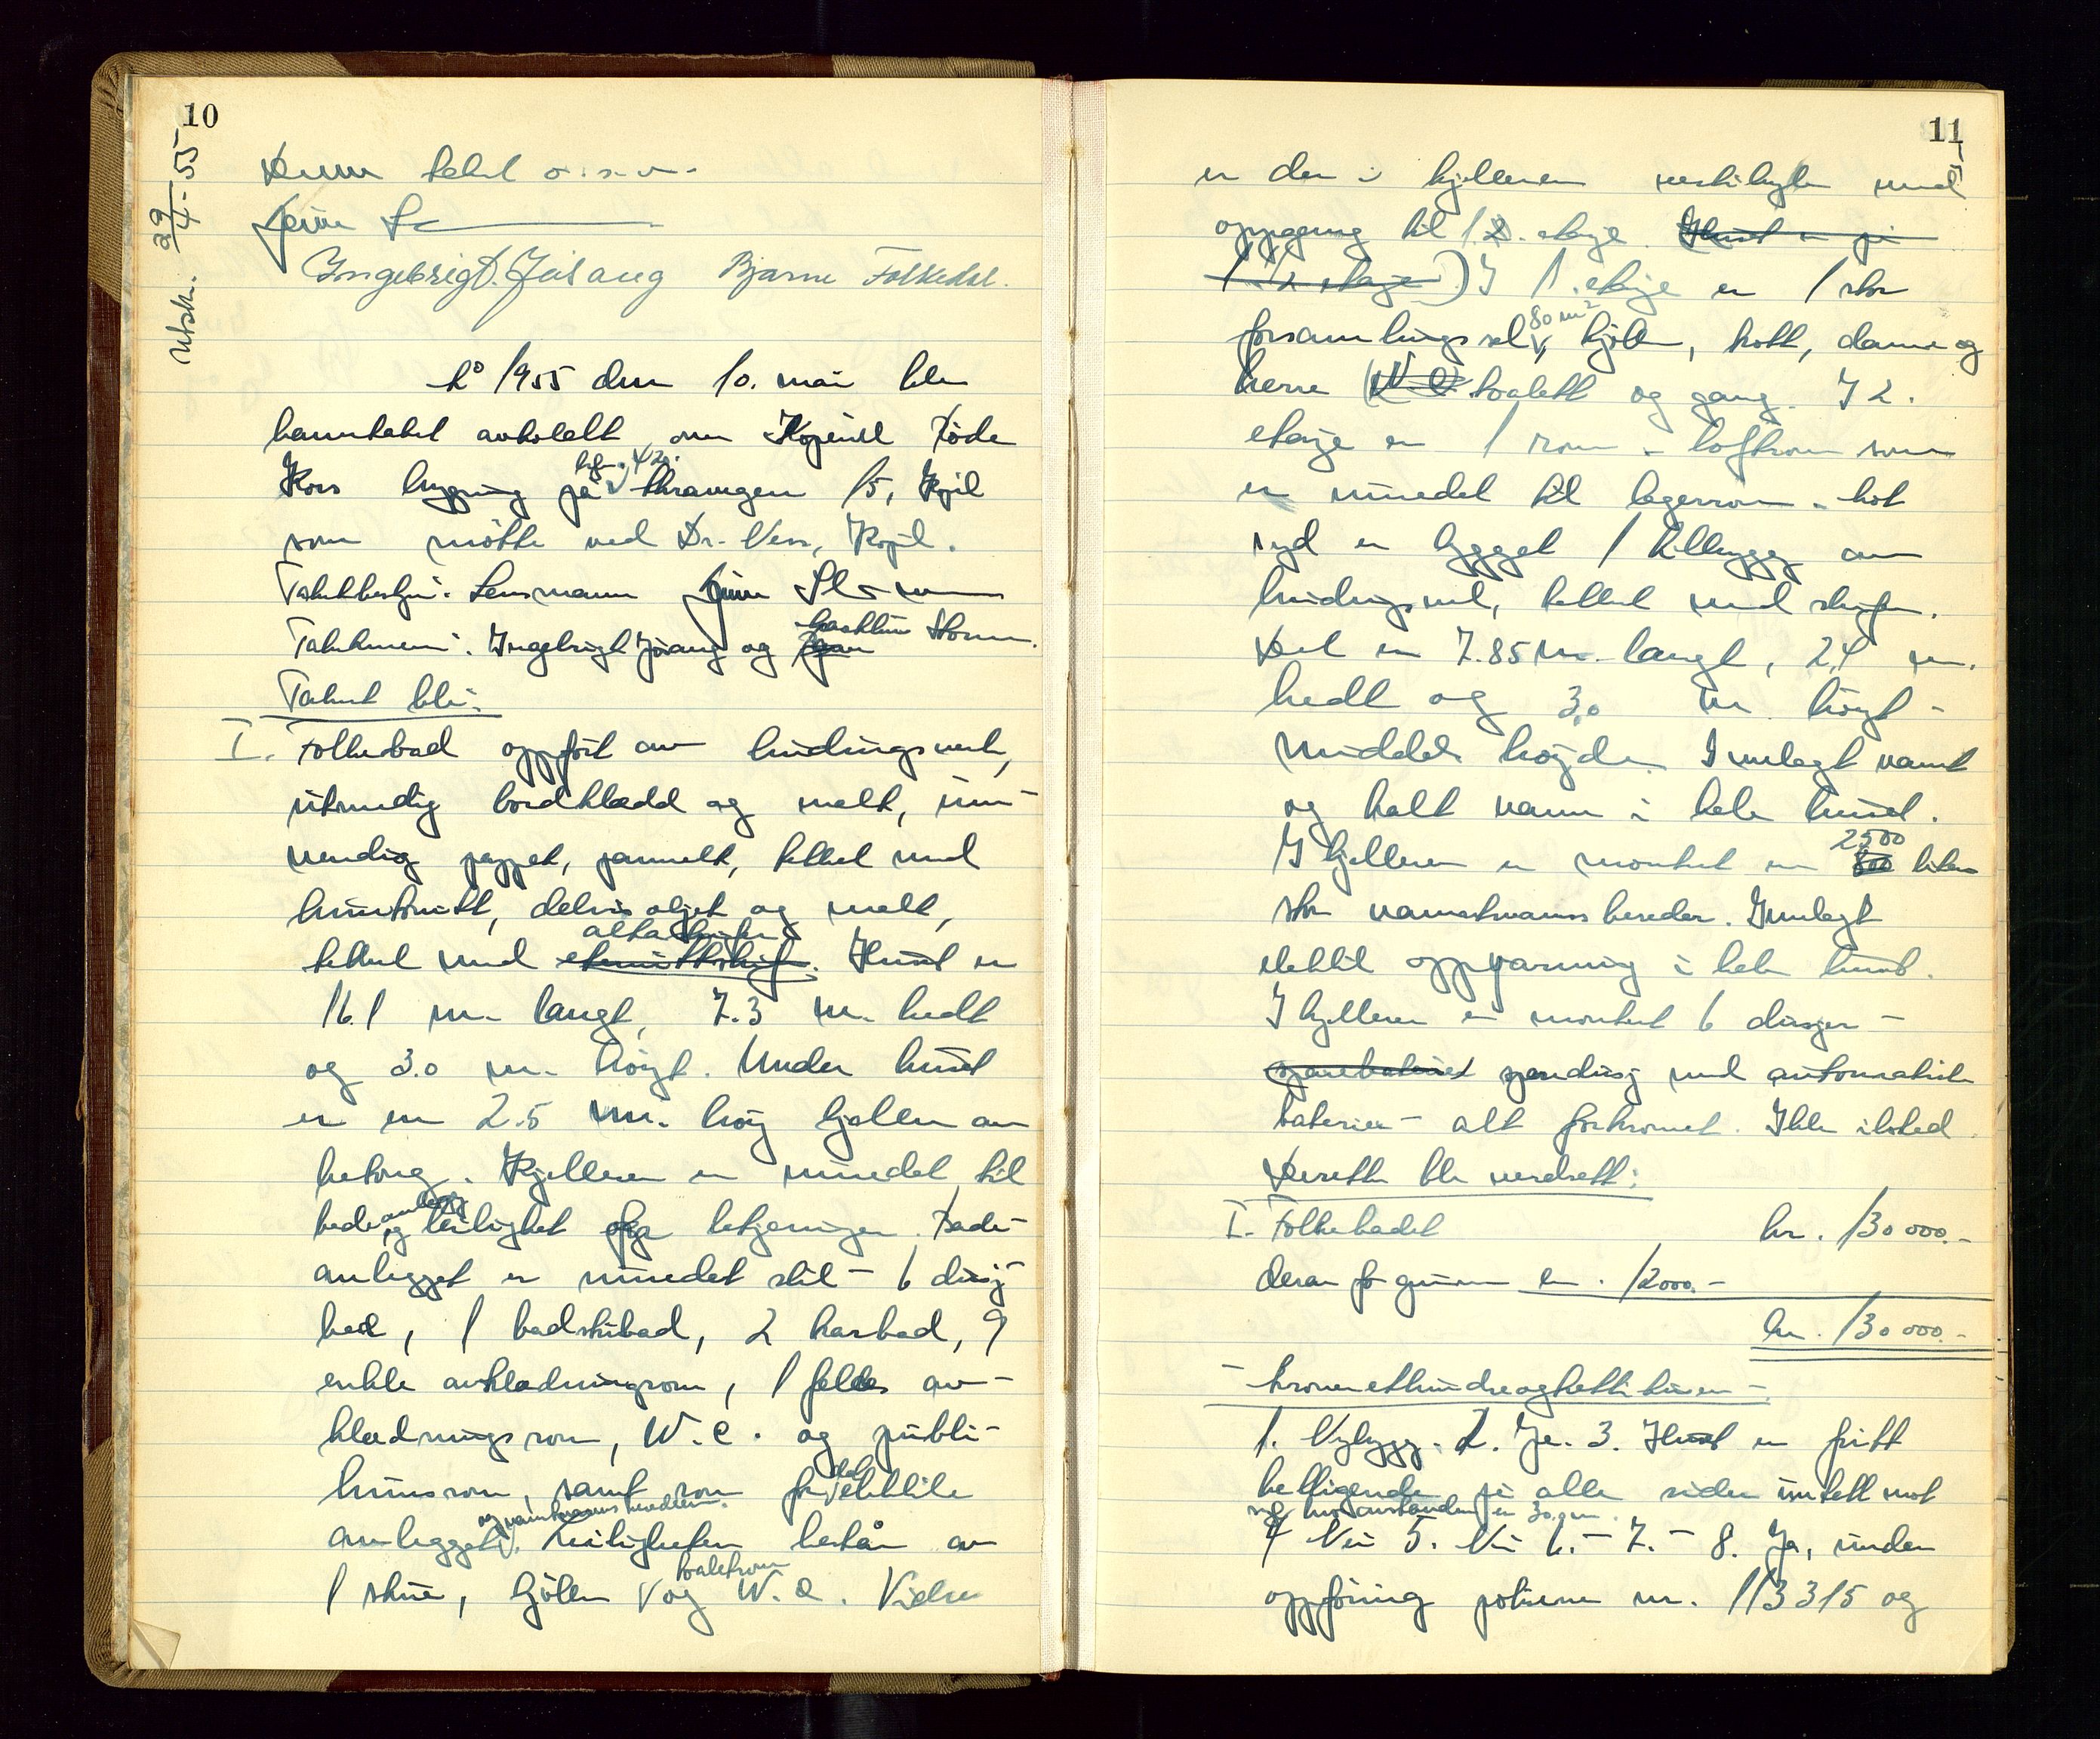 10
Utskr. 29/4-55
Denne takst o.s.v.
Ingebrigt Jøsang Bjarne Folkedal.
År 1955 den 10. mai ble
branntakst avholdt over Kopervik Røde
Kors bygning på 15, Kopervik
som møtte ved Dr. Kopervik.
Takstbestyrer: Lensmann
Takstmenn: Ingebrigt Jøsang og Storm.
Takst ble:
I. Folkebad oppført av bindingsverk,
utvendig bordklædd og malt, inn-
vendig pappet, pannelt, tekket med
delvis oljet og malt,
tekket med altaskifer. Huset er
16.1 m. langt, 7.3 m. bredt
og 3.0 m. høyt. Under huset
er en 2.5 m. høy kjeller av
betong. Kjelleren er innredet til
badeanlegg og leilighet for betjeningen. Bade-
anlegget er innredet slik - 6 dusj
bad, 1 badstubad, 2 karbad, 9
enkle avkledningsrom, 1 felles av-
kledningsrom, W.C. og publi-
kumsrom, samt rom for det elektriske
anlegget og varmtvannsberederen. Leiligheten består av
1 stue, kjøken toalettrom og W.C. Videre
11
er der i kjelleren vestibyle med
oppgang til 1. etasje. Huset er på
1 1/2 etasje) I 1. etasje er 1 stor
forsamlingssal 80 m², kjøken, kott, dame og
herre (W.C) toalett og gang. I 2.
etasje er 1 rom - loftrom som
er innredet til lagerrom. Mot
syd er bygget 1 tilbygg av
bindingsverk, tekket med skifer.
Det er 7.85 m. langt, 2,4 m.
bredt og 3,0 m høyt -
middels høyde. Innlagt varmt
og kalt vann i hele huset.
I kjelleren er montert en 2500 liter
stor varmtvannsbereder. Innlagt
elektrisk oppvarming i hele huset.
I kjelleren er montert 6 dusjer -
sparedusj med automatiske
baterier - alt forkromet. Ikke ildsted.
Deretter ble verdsatt:
I. Folkebadet kr. 130 000.-
derav for grunn kr. 12000.-
kr. 130 000.-
- kronerethundreogtrettitusen -
1. Nybygg. 2. Ja. 3. Huset er fritt
beliggende på alle sider unntatt mot
syd hvor avstanden er 30.0 m.
4 Nei 5. Nei 6. - 7. - 8. Ja, under
oppføring polisene nr. 113315 og